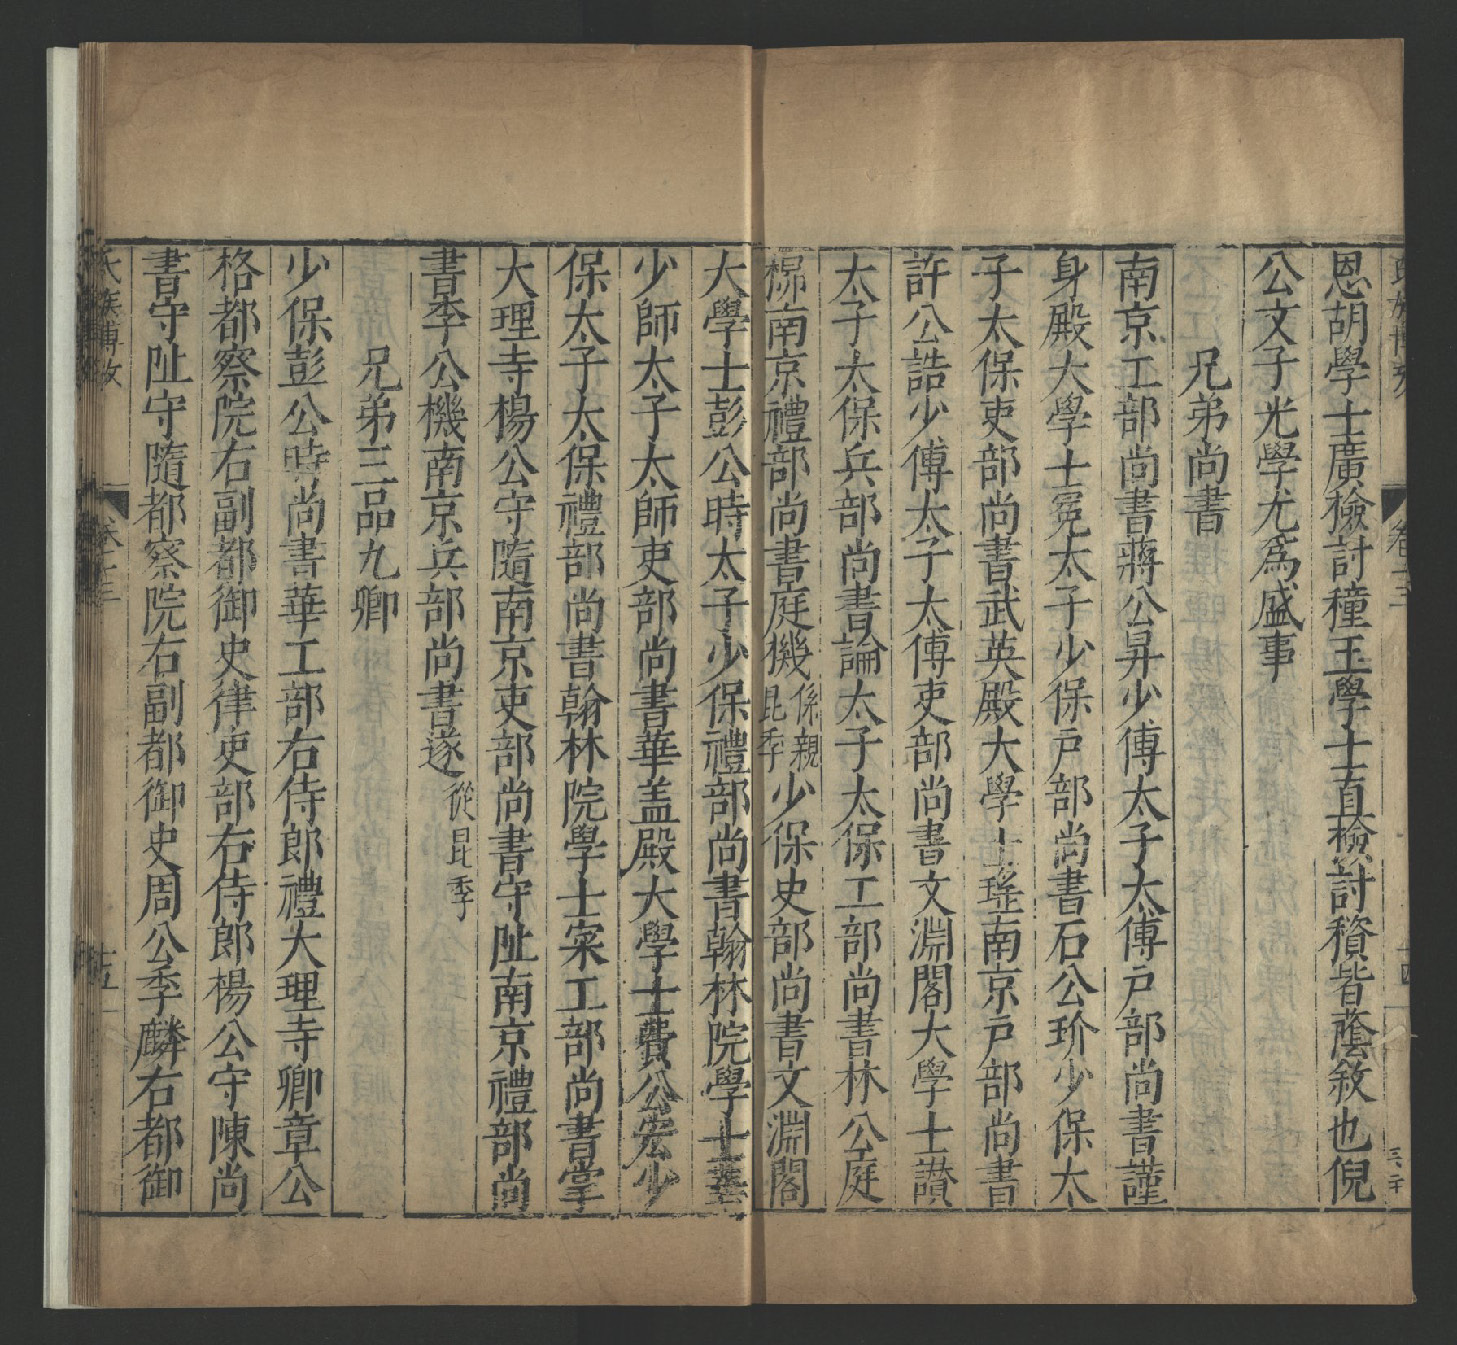 恩胡學士廣檢討穜王學士直檢討積皆蔭敘也倪
公文子光學尤爲盛事
兄弟尚書
南京工部尚書蔣公昇少傅太子太傅戶部尚書謹
身殿大學士冕太子少保戶部尚書石公玠少保太
子太保吏部尚書武英殿大學士珤南京戶部尚書
許公誥少傅太子太傅吏部尚書文淵閣大學士讃
太子太保兵部尚書論太子太保工部尚書林公庭
㭿南京禮部尚書庭機係親昆季少保史部尚書文淵閣
大學士彭公時太子少保禮部尚書翰林院學士華
少師太子太師吏部尚書華盖殿大學士費公宏少
保太子太保禮部尚書翰林院學士寀工部尚書掌
大理寺楊公守隨南京吏部尚書守阯南京禮部尚
書李公機南京兵部尚書遂從昆季
兄弟三品九卿
少保彭公時尚書華工部右侍郎禮大理寺卿章公
格都察院右副都御史律吏部右侍郎楊公守陳尚
書守阯守隨都察院右副都御史周公季麟右都御
氏族博攷
卷十三
十五